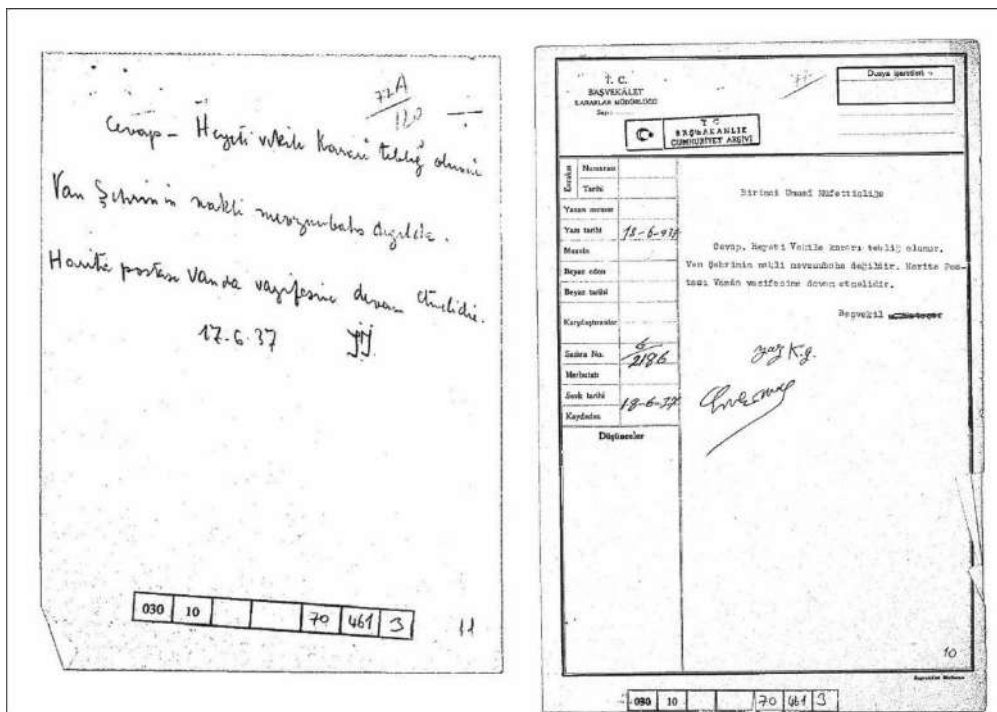 77A
120
Cevap - Heyeti vekile Kararı tebliğ olunur
Van Şehrinin nakli mevzuubahs değildir.
Harita postası Vanda vazifesine devam etmelidir.
17.6.37
030 10 70 461 3
11
T. C.
BAŞVEKÂLET
KARARLAR MÜDÜRLÜĞÜ
Sayı
77
Dosya işaretleri
T C
BAŞBAKANLIK
CUMHURİYET ARŞİVİ
Evrakın
Numarası
Tarihi
Yazan
Yazı tarihi 18-6-937
Müsvedde
Beyaz eden
Beyaz tarihi
Karşılaştıranlar
Sadıra No. 6/2186
Merbutatı
Sevk tarihi 18-6-37
Kaydeden
Düşünceler
Birinci Umumî Müfettişliğe
Cevap. Heyeti Vekile kararı tebliğ olunur.
Van Şehrinin nakli mevzuubahs değildir. Harita Pos-
tası Vanda vazifesine devam etmelidir.
Başvekil
K.g.
10
030 10 70 461 3